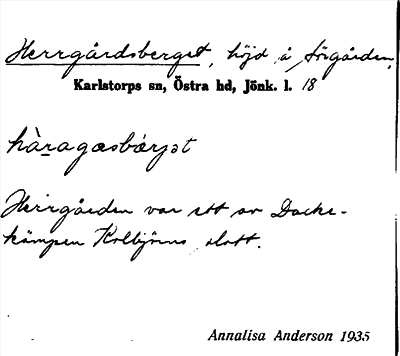 Herrgårdsberget, höjd å Sörgården,
Karlstorps sn, Östra hd, Jönk. l. 18
hàragæsbærjət
Herrgården var ett av Dacke-
kämpen Kolbjörns slott.
Annalisa Anderson 1935